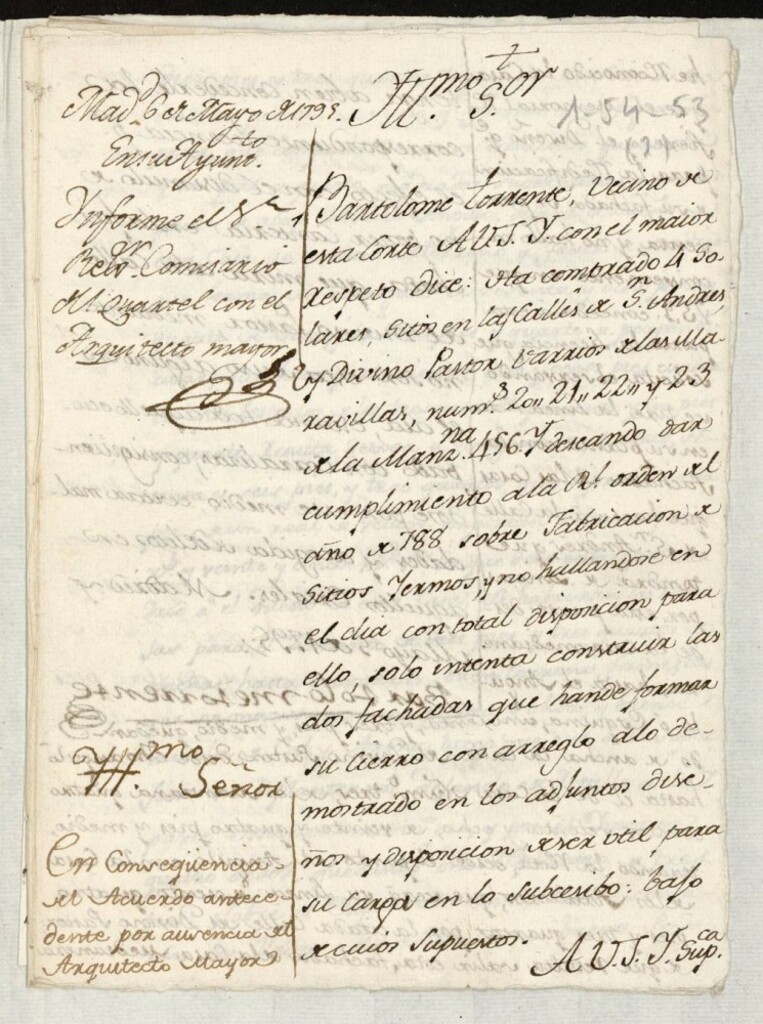 Yll.mo S.or
1-54-53
Mad.d 6 de Mayo de 1795.
En su Ayunt.to
Ynforme el S.r
Rex.or Comisario
del Quartel con el
Arquitecto mayor
Bartolome Torrente, Vecino de
esta Corte A V.S.Y. con el maior
respeto dice: Ha comprado 4 So-
lares, sitos en las Calles de S.n Andres,
y Divino Pastor varrios de las Ma-
ravillas, num.s 20,, 21,, 22,, y 23
de la Manz.na 456 Y deseando dar
cumplimiento a la Rl. orden del
año de 788 sobre Fabricacion de
Sitios Yermos, y no hallandose en
el dia con total disposicion para
ello, solo intenta construir las
dos fachadas que han de formar
su Cierro con arreglo a lo de-
mostrado en los adjuntos dise-
ños y disposicion de ser util para
su Carga en lo subcesibo: bajo
de cuios Supuestos.
A V.S.Y. Sup.ca
Yll.mo Señor
En Conseqüencia
del Acuerdo antece
dente por ausencia del
Arquitecto Mayor